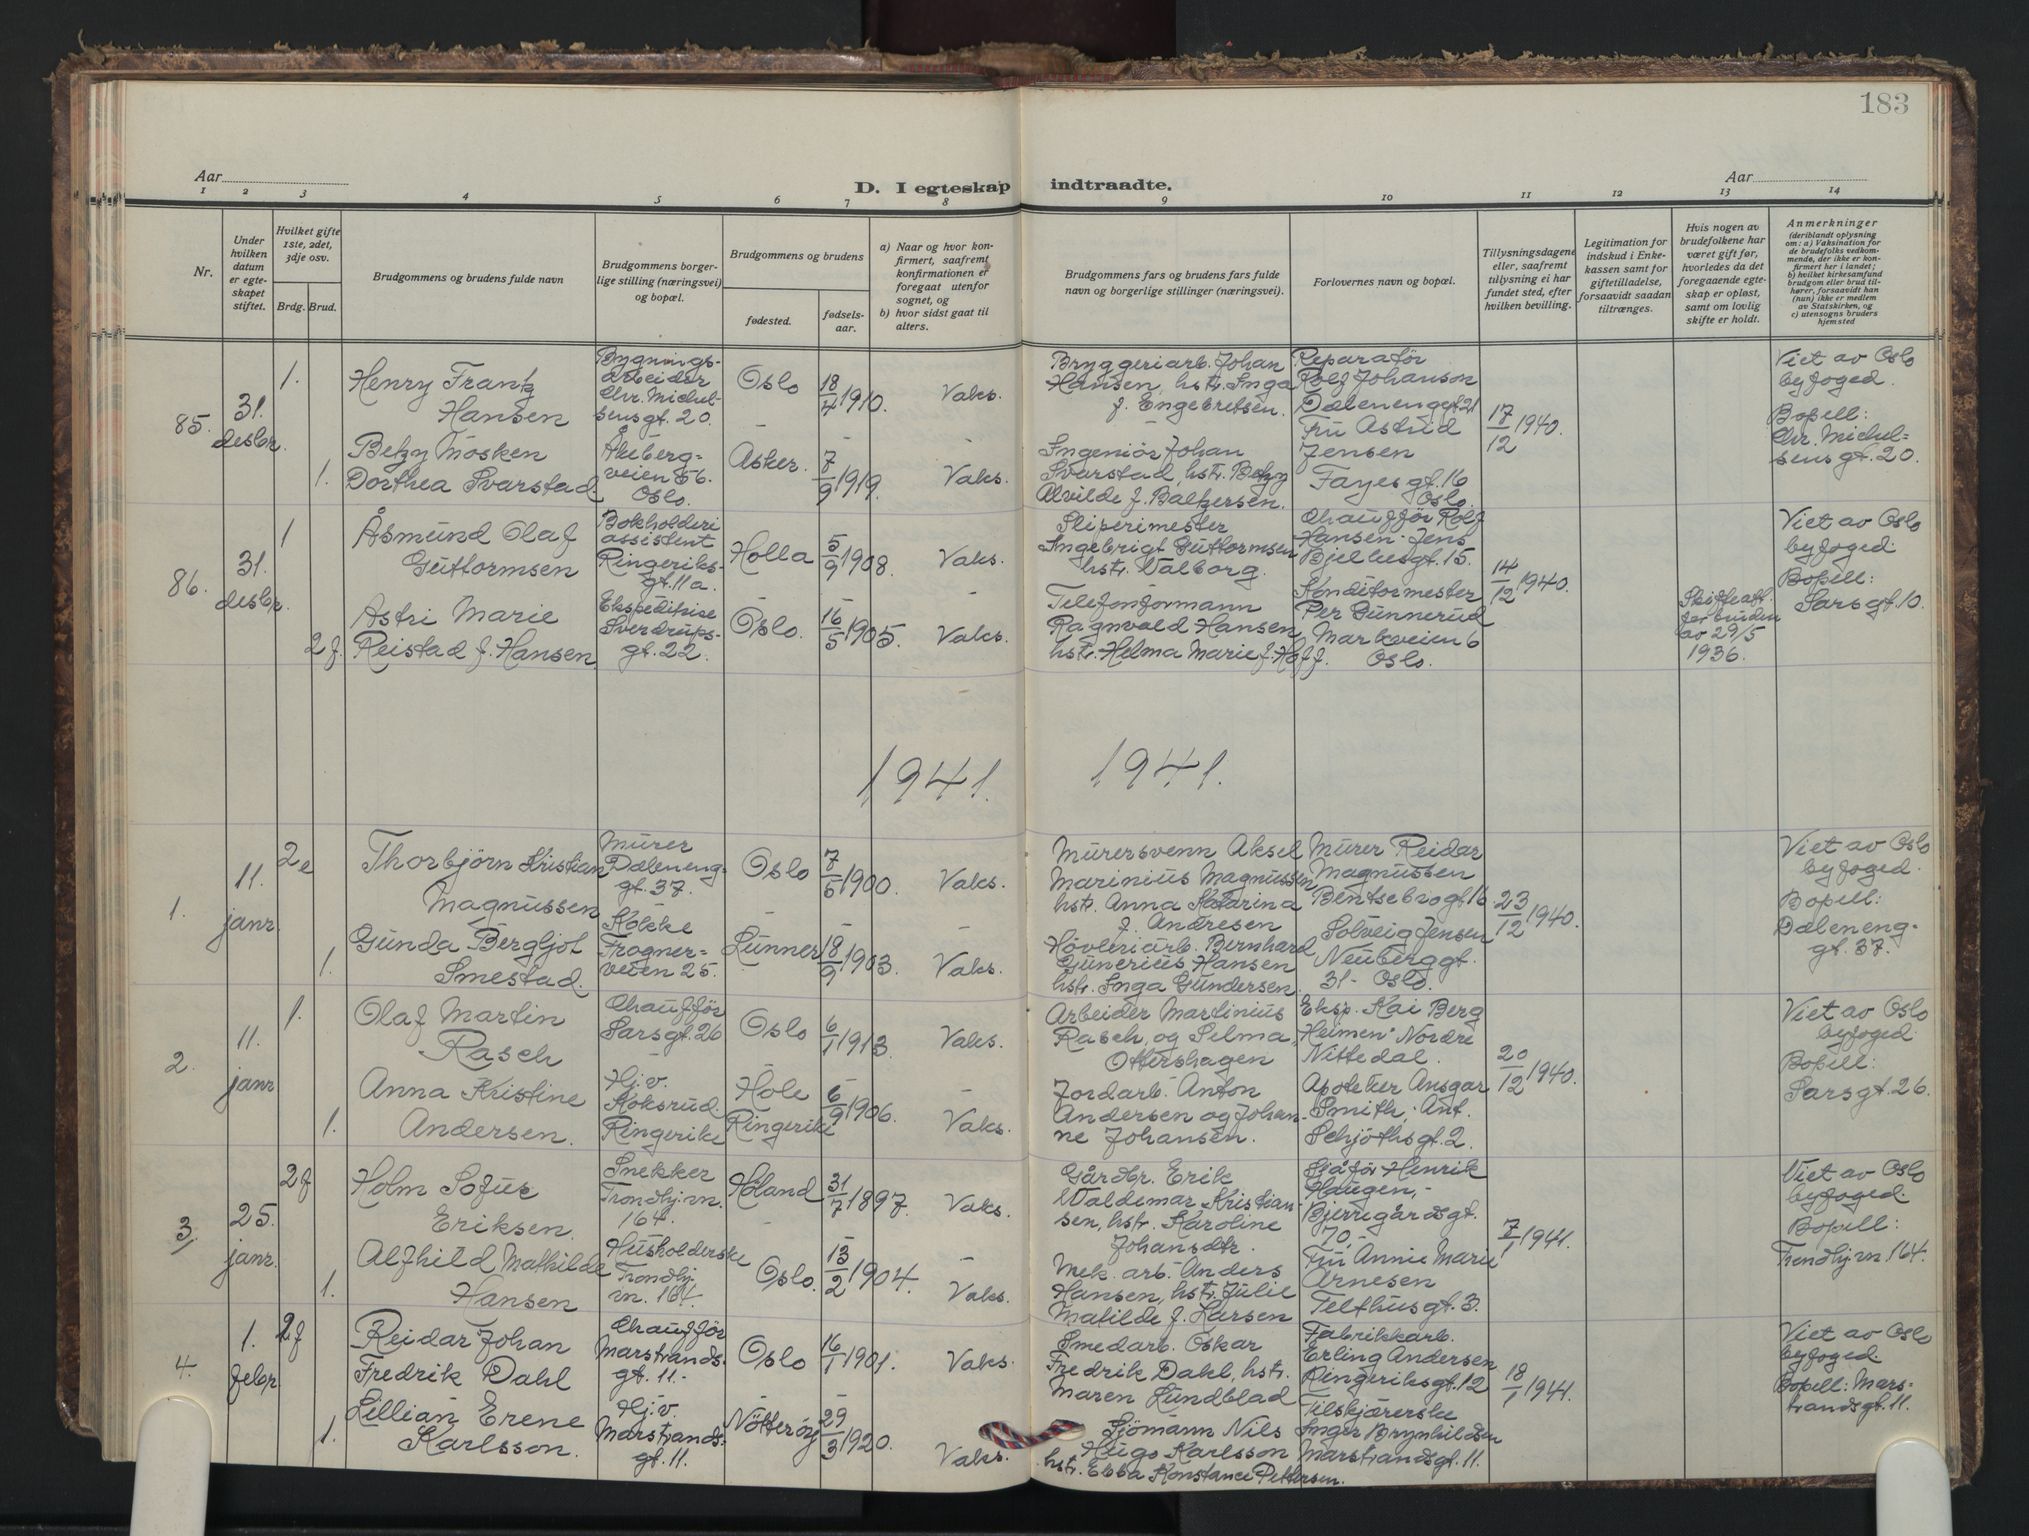 183
Aar
D. I egteskap indtraadte.
Aar
1 2 3 4 5 6 7 8 9 10 11 12 13 14
Nr.
Under hvilken datum er egteskapet stiftet.
Hvilket gifte 1ste, 2det, 3dje osv.
Brdg. Brud.
Brudgommens og brudens fulde navn
Brudgommens borgerlige stilling (næringsvei) og bopæl.
Brudgommens og brudens
fødested.
fødselsaar.
a) Naar og hvor konfirmert, saafremt konfirmationen er foregaat utenfor sognet, og
b) hvor sidst gaat til alters.
Brudgommens fars og brudens fars fulde navn og borgerlige stillinger (næringsvei).
Forlovernes navn og bopæl.
Tillysningsdagene eller, saafremt tillysning ei har fundet sted, efter hvilken bevilling.
Legitimation for indskud i Enkekassen samt for giftetilladelse, forsaavidt saadan tiltrænges.
Hvis nogen av brudefolkene har været gift før, hvorledes da det foregaaende egteskap er opløst, samt om lovlig skifte er holdt.
Anmerkninger
(deriblandt oplysning om: a) Vaksination for de brudefolks vedkommende, der ikke er konfirmert her i landet; b) hvilket kirkesamfund brudgom eller brud tilhører, forsaavidt han (hun) ikke er medlem av Statskirken, og c) utensogns bruders hjemsted
85.
31. desbr.
1.
Henry Frantz
Hansen
Bygnings-
arbeider
Chr. Michel-
sensgt. 20.
Oslo
18/4 1910.
Vaks.
Bryggeriarb. Johan
Hansen, hstr. Inga
f. Engebretsen.
Reparatør
Rolf Johanson
Dælenenggt 21
Fru Astrid
Jensen
Fayesgt. 16
Oslo.
17/12 1940.
Viet av Oslo
byfoged.
Bopell:
Chr. Michel=
sensgt. 20.
1.
Betzy Mosken
Dorthea Svarstad
Åkeberg=
veien 56.
Oslo.
Asker.
7/9 1919.
Vaks.
Ingeniør Johan
Svarstad, hstr. Betzy
Alvilde f. Baltzersen.
86.
31. desbr.
1
Åsmund Olaf
Guttormsen
Bokholderi
assistent
Ringeriks-
gt. 11a.
Holla
5/9 1908.
Vaks.
Sliperimester
Ingebrigt Guttormsen
hstr. Valborg.
Chauffør Rolf
Hansen - Jens
Bjelkesgt. 15.
Konditormester
Per Gunnerud
Markveien 6
Oslo.
14/12 1940.
Skifteatt.
for bruden
av 29/5
1936.
Viet av Oslo
byfoged.
Bopell:
Sarsgt. 10.
2 f.
Astri Marie
Reistad f. Hansen
Ekspeditrise
Sverdrups-
gt. 22.
Oslo.
16/5 1905.
Vaks.
Telefonformann
Ragnvald Hansen
hstr. Helma Marie f. Hoff.
1941. 1941.
1.
11. janr.
2 e
Thorbjörn Kristian
Magnussen
Murer
Dæleneng-
gt. 37.
Oslo
7/5 1900.
Vaks.
Murersvenn Aksel
Marinius Magnussen
hstr. Anna Katarina
f. Andresen
Murer Reidar
Magnussen
Bentsebrogt 16
Solveig Jensen
Neuberggt.
31 - Oslo.
23/12 1940.
Viet av Oslo
byfoged.
Bopell:
Dæleneng-
gt. 37.
1.
Gunda Bergljot
Smestad.
Kokke
Frogner=
veien 25.
Lunner
18/9 1903.
Vaks.
Høvleriarb. Bernhard
Gunerius Hansen
hstr. Inga Gundersen.
2.
11. janr
1.
Olaf Martin
Rasch
Chauffør
Sarsgt. 26
Oslo
6/1 1913.
Vaks.
Arbeider Martinius
Rasch, og Selma,
Ottershagen
Eksp. Kai Berg
Heimen - Nordre
Nittedal.
Apoteker Ansgar
Smith, Ant.
Schjøthsgt. 2.
20/12 1940.
Viet av Oslo
byfoged.
Bopell:
Sarsgt. 26.
1.
Anna Kristine
Andersen.
Hj.v.
Koksrud.
Ringerike
Hole
Ringerike
6/9 1906.
Vaks.
Jordarb. Anton
Andersen og Johan-
ne Johansen.
3.
25. janr.
2 f
Holm Sofus
Eriksen.
Snekker
Trondhj.vn.
164.
Høland
31/7 1897.
Vaks.
Gårdbr. Erik
Waldemar Kristian-
sen, hstr. Karoline
Johansdtr.
Sjåfør Henrik
Haugen, -
Bjerregårdsgt.
70.
Fru Annie Marie
Arnesen
Telthusgt. 3.
7/1 1941.
Viet av Oslo
byfoged.
Bopell:
Trondhj.vn. 164.
1.
Alfhild Mathilde
Hansen
Husholderske
Trondhj.
vn. 164.
Oslo.
13/2 1904.
Vaks.
Mek. arb. Anders
Hansen, hstr. Julie
Matilde f. Larsen
4.
1. febr.
2 f
Reidar Johan
Fredrik Dahl
Chauffør
Marstrands-
gt. 11. -
Oslo
16/1 1901.
Vaks.
Smedarb. Oskar
Fredrik Dahl, hstr.
Maren Lundblad
Fabrikkarb.
Erling Andersen
Ringeriksgt. 12
Tilskjærerske
Inger Brynhildsen
Marstrandsgt. 11.
18/1 1941.
Viet av Oslo
byfoged.
Bopell: Mars-
trandsgt. 11.
1.
Lillian Erene
Karlsson.
Hj.v.
Marstrands-
gt. 11.
Nötterøy
29/3 1920.
Vaks.
Sjömann Nils
Hugo Karlsson
hstr. Ebba Konstance Pettersen.